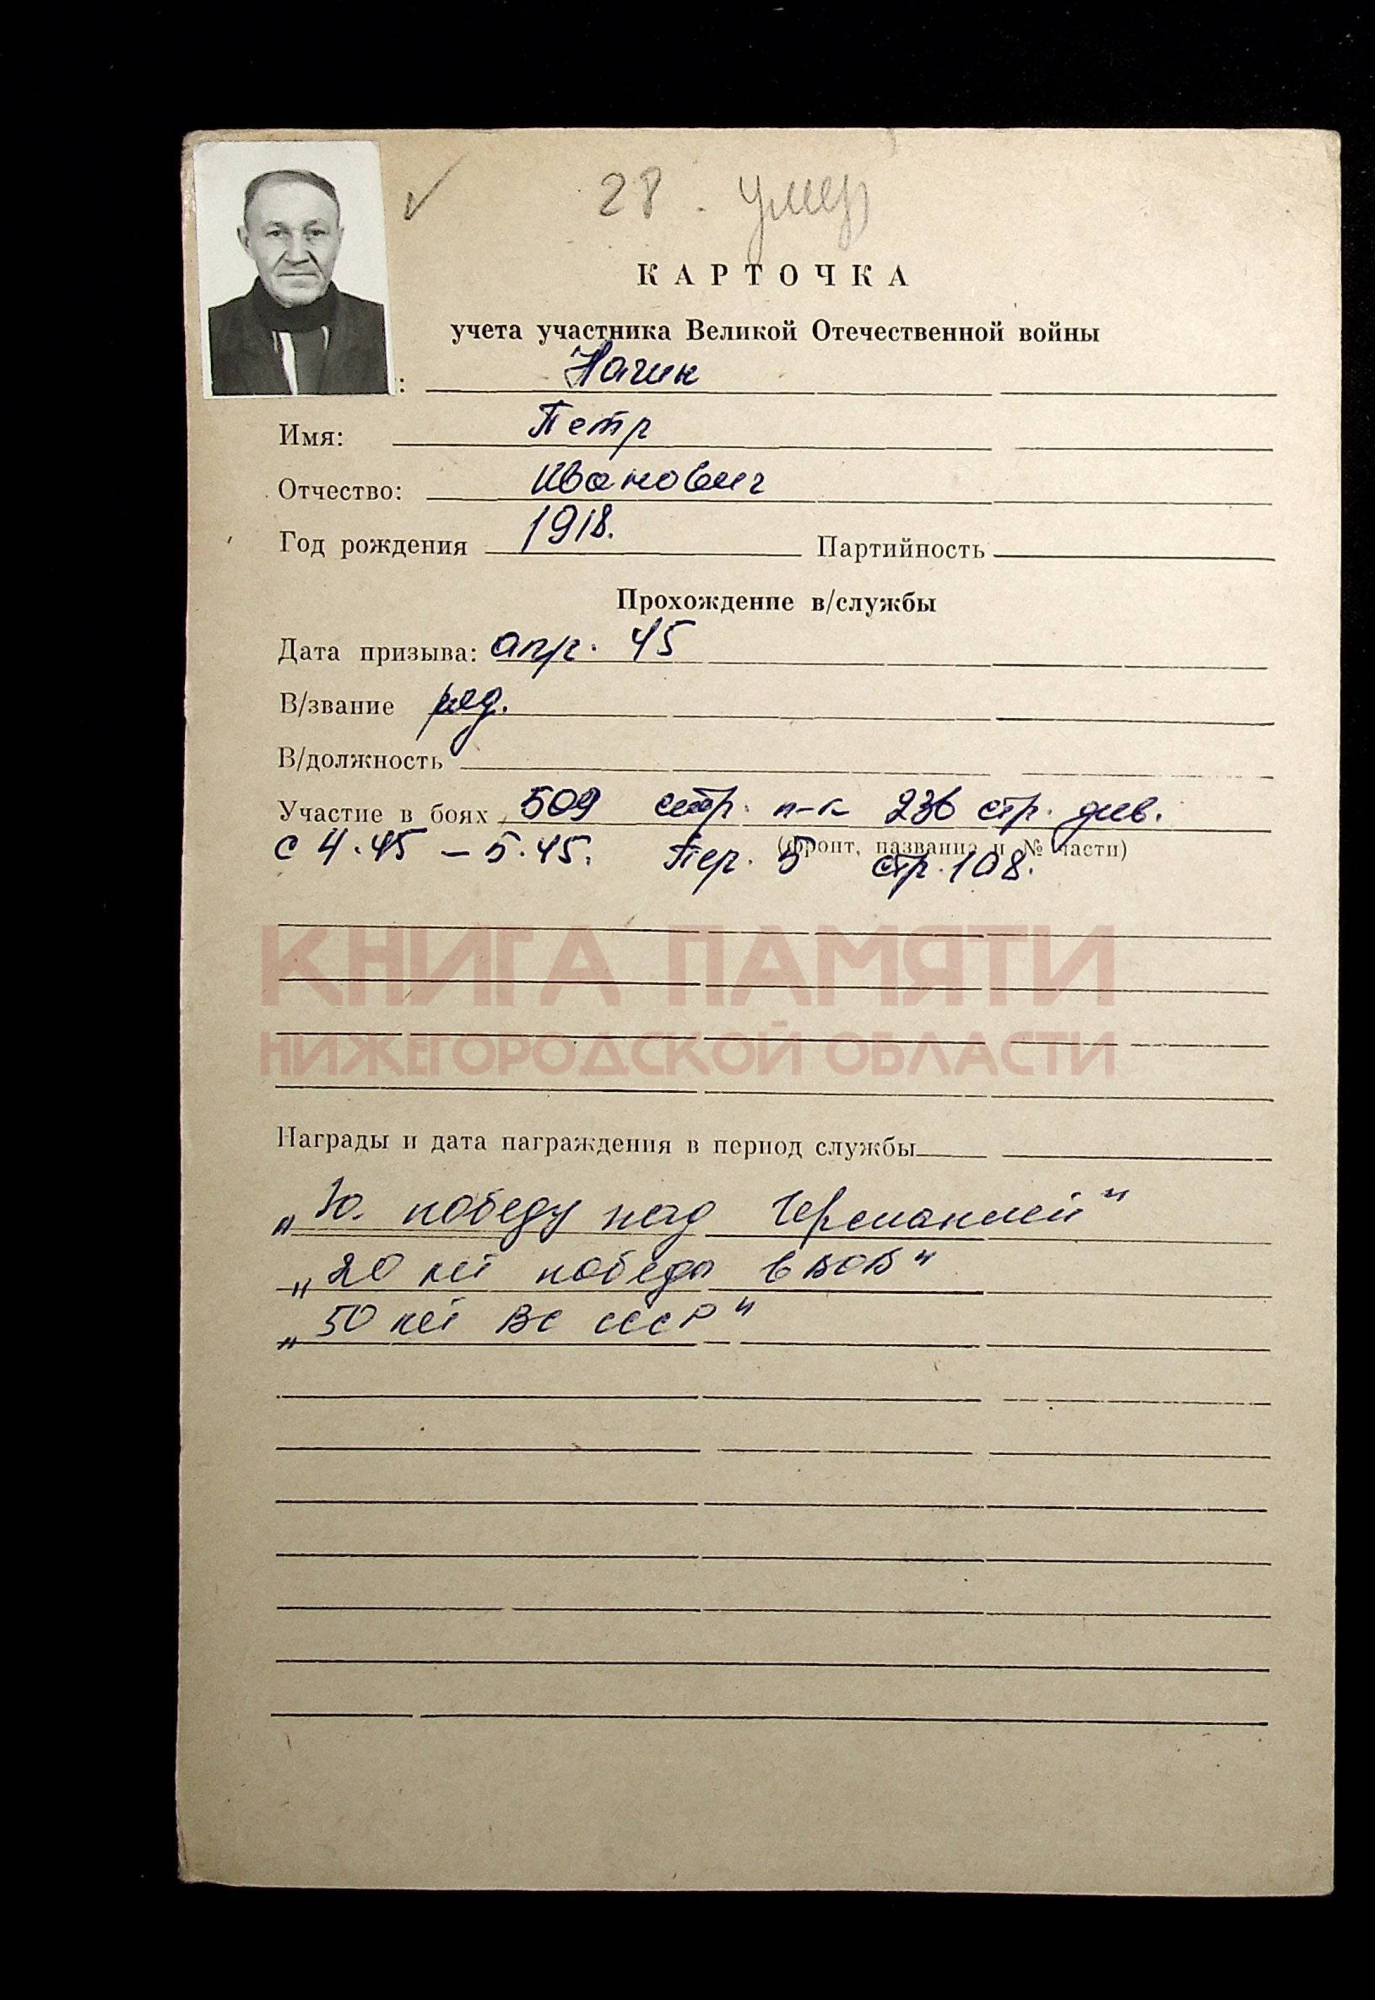 28. умер
КАРТОЧКА
учета участника Великой Отечественной войны
: Нагин
Имя: Петр
Отчество: Иванович
Год рождения 1918. Партийность
Прохождение в/службы
Дата призыва: апр. 45
В/звание ряд.
В/должность
Участие в боях 509 стр. п-к 236 стр. див.
(фронт, название и № части)
с 4.45 – 5.45. Пер. 5 стр. 108.
КНИГА ПАМЯТИ
НИЖЕГОРОДСКОЙ ОБЛАСТИ
Награды и дата награждения в период службы
„За победу над Германией"
„20 лет победы в ВОВ"
„50 лет ВС СССР"